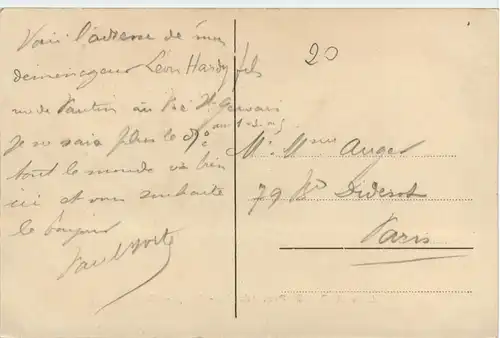 Voici l'adresse de mon
déménageur Léon Hardy fils
rue de Pantin au Pré St Gervais
je ne sais plus le No
tout le monde va bien
ici et vous souhaite
le bonjour
20
Mr Mme Auger
79 Bd Diderot
Paris